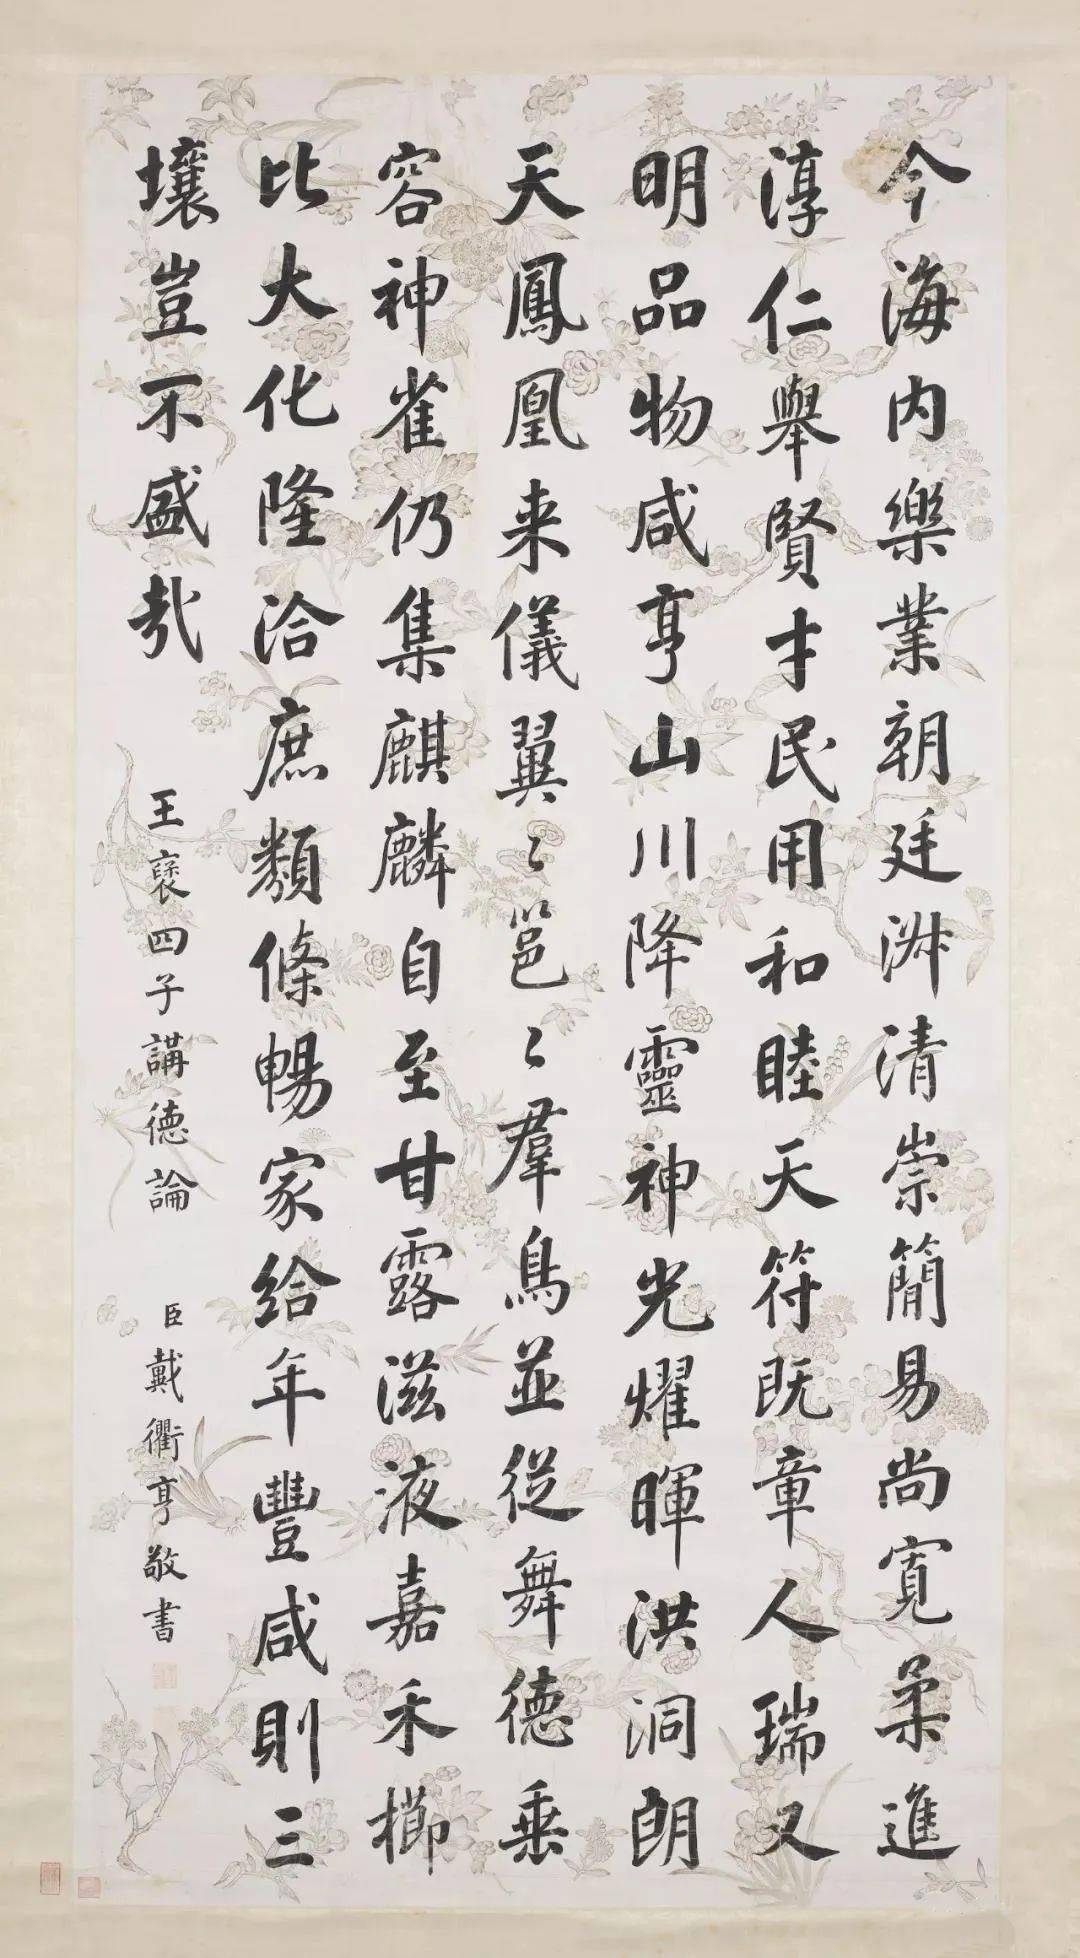 今海内樂業朝廷淑清崇簡易尚寬柔進
淳仁舉賢才民用和睦天符既章人瑞又
明品物咸亨山川降靈神光耀暉洪洞朗
天鳳凰来儀翼〻邕〻羣鳥並従舞德垂
容神雀仍集麒麟自至甘露滋液嘉禾櫛
比大化隆洽庶類條暢家給年豐咸則三
壤豈不盛哉
王襃四子講德論
臣戴衢亨敬書